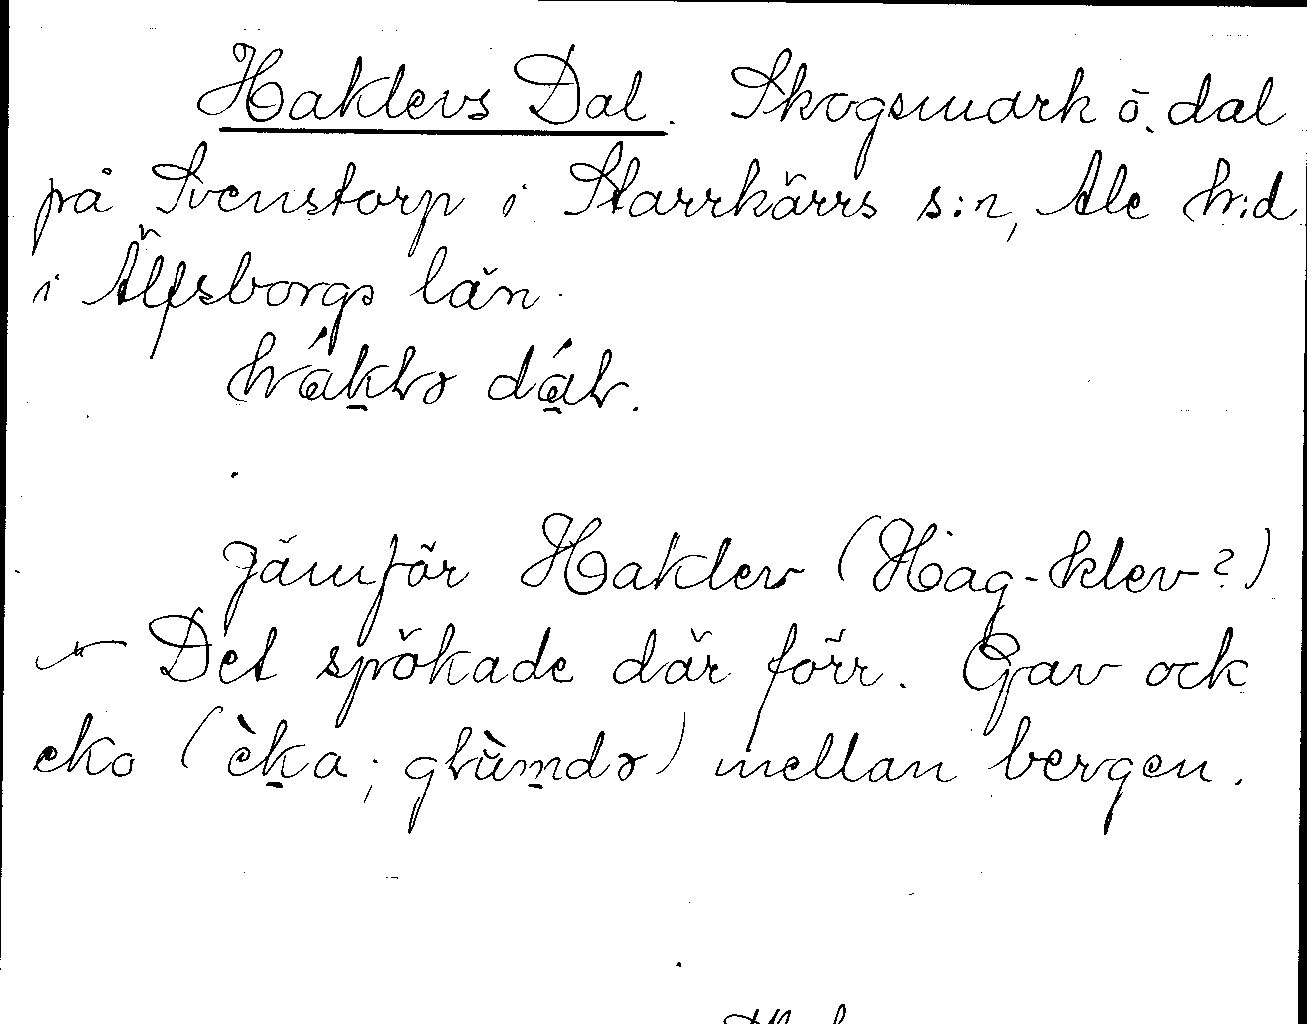 Haklevs Dal. Skogsmark o. dal
på Svenstorp i Starrkärrs s:n, Ale h:d
i Älfsborgs län.
dál.
Jämför Haklev (Hag-klev?)
– Det spökade där förr. Gav ock
eko (èka; glùmdə) mellan bergen.